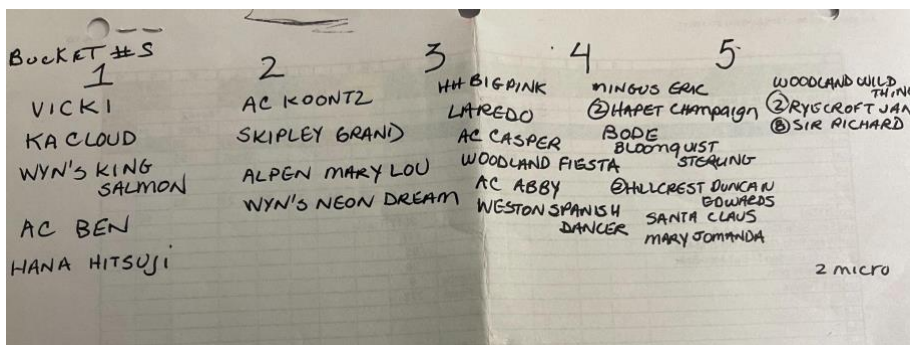 BUCKET #S
1
VICKI
KA CLOUD
WYN'S KING
SALMON
AC BEN
HANA HITSUJI
2
AC KOONTZ
SKIPLEY GRAND
ALPEN MARY LOU
WYN'S NEON DREAM
3
HH BIGPINK
LAREDO
AC CASPER
WOODLAND FIESTA
AC ABBY
WESTON SPANISH
DANCER
4
MINGUS ERIC
② HAPET CHAMPAIGN
BODE
BLOOMQUIST
STERLING
② HILLCREST DUNCAN
EDWARDS
SANTA CLAUS
MARY JOMANDA
5
WOODLAND WILD
THING
② RYECROFT JAN
Ⓑ SIR RICHARD
2 micro